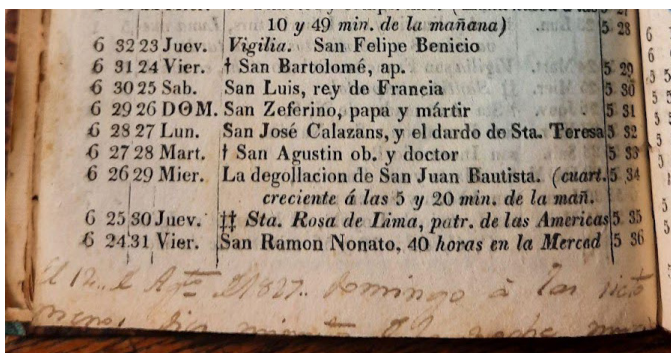 10 y 49 min. de la mañana) 5 28
6 32 23 Juev. Vigilia. San Felipe Benicio
6 31 24 Vier. † San Bartolomé, ap. 5 29
6 30 25 Sab. San Luis, rey de Francia 5 30
6 29 26 DOM. San Zeferino, papa y mártir 5 31
6 28 27 Lun. San José Calazans, y el dardo de Sta. Teresa 5 32
6 27 28 Mart. † San Agustin ob. y doctor 5 33
6 26 29 Mier. La degollacion de San Juan Bautista. (cuart. 5 34
creciente á las 5 y 20 min. de la mañ.
6 25 30 Juev. ‡‡ Sta. Rosa de Lima, patr. de las Americas 5 35
6 24 31 Vier. San Ramon Nonato, 40 horas en la Merced 5 36
El 12 Agto 1827 domingo a las siete
menos diez la noche